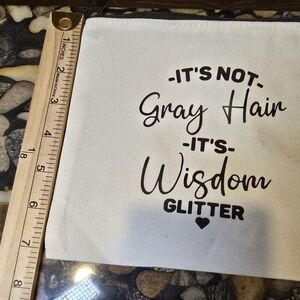 -IT'S NOT-
Gray Hair
-IT'S-
Wisdom
GLITTER
1 INCHES
2
3
4
5
6
7
8